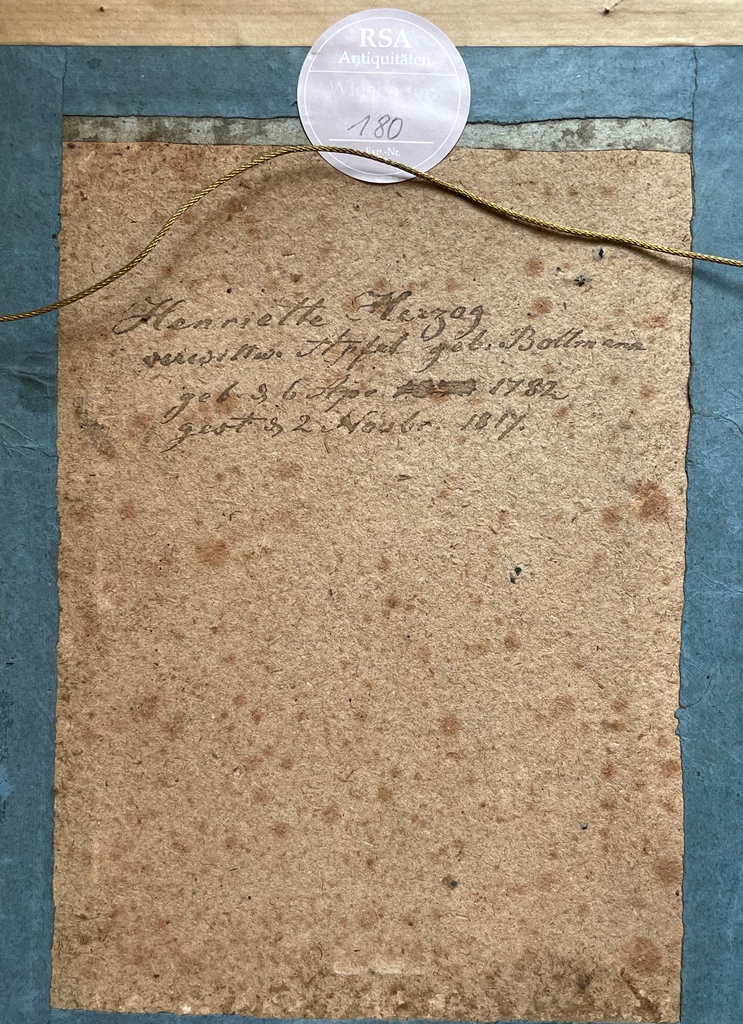 RSA
Antiquitäten
Wiesbaden
180
Exp.-Nr.
Henriette Herzog
verwittw. Apfel geb. Bollmann
geb. d. 6 Apr. 1782
gest d. 2 Novbr. 1817.